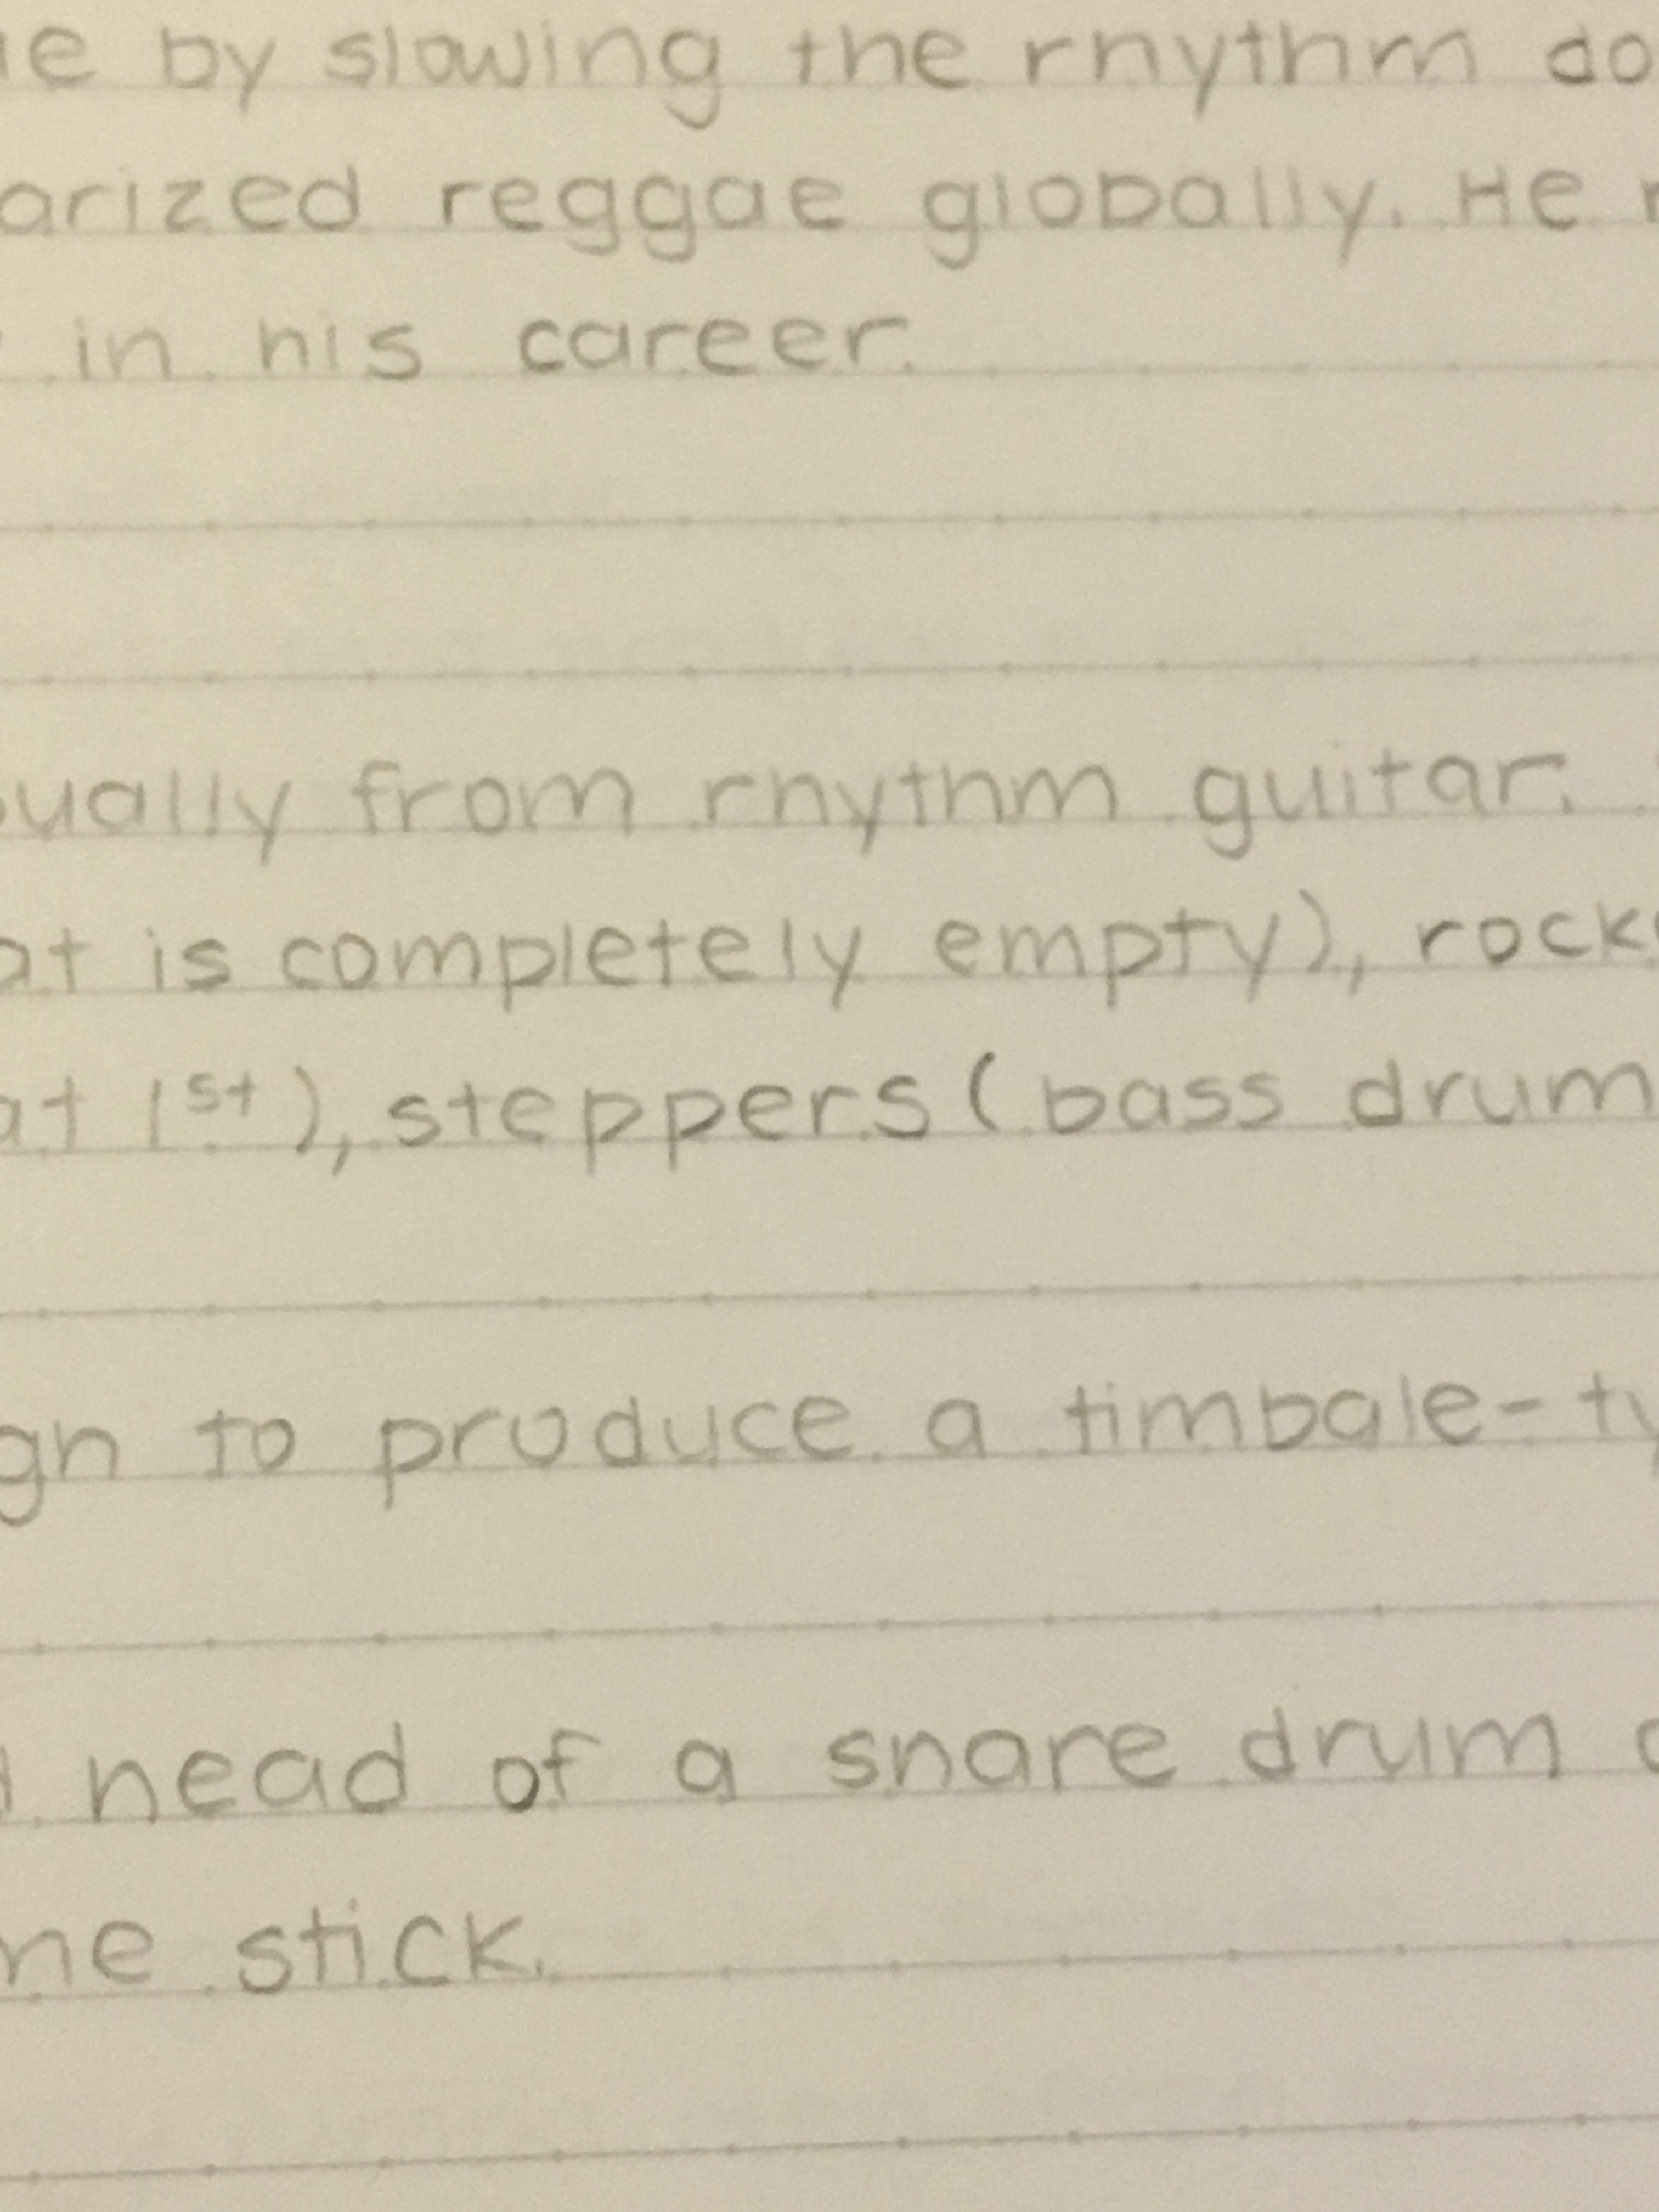 by slowing the rhythm do
arized reggae globally. He
in his career.
ually from rhythm guitar.
at is completely empty), rock
at 1st), steppers (bass drum
gn to produce a timbale-ty
head of a snare drum
ne stick.